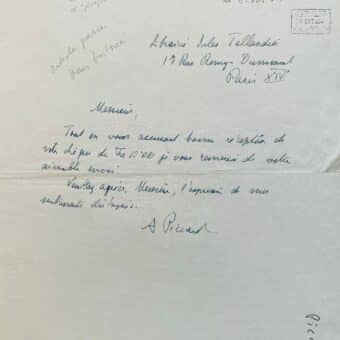 article paru
dans
Librairie Jules Tallandier
17 Rue Remy-Dumoncel
Paris XIV
Messieurs,
Tout en vous accusant bonne réception de
votre chèque de je vous remercie de votre
aimable envoi.
Veuillez agréer, Messieurs, l'expression de mes
sentiments distingués.
A Piccard